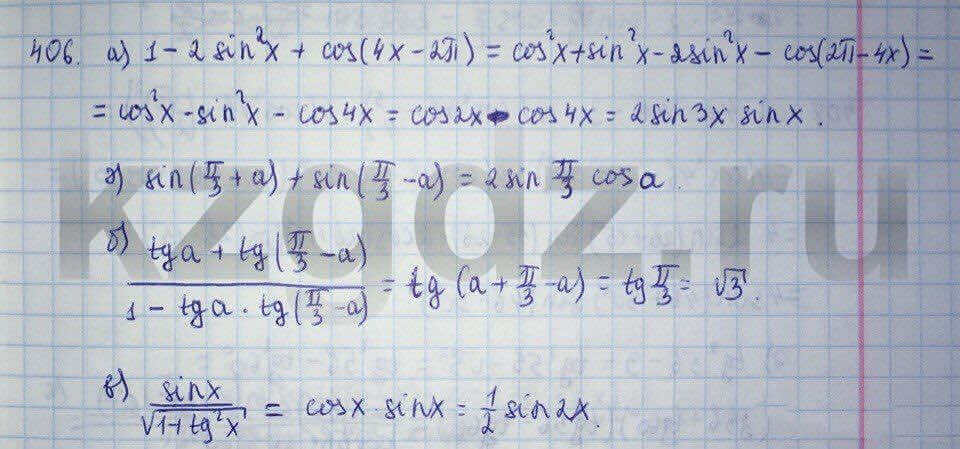 406. а) 1 - 2 sin²x + cos(4x - 2π) = cos²x + sin²x - 2sin²x - cos(2π - 4x) =
= cos²x - sin²x - cos4x = cos2x - cos4x = 2 sin3x sinx.
г) sin(π/3 + a) + sin(π/3 - a) = 2 sin π/3 cos a.
б) (tg a + tg(π/3 - a)) / (1 - tg a · tg(π/3 - a)) = tg (a + π/3 - a) = tg π/3 = √3.
в) sinx / √(1+tg²x) = cosx · sinx = 1/2 sin2x.
kzgdz.ru